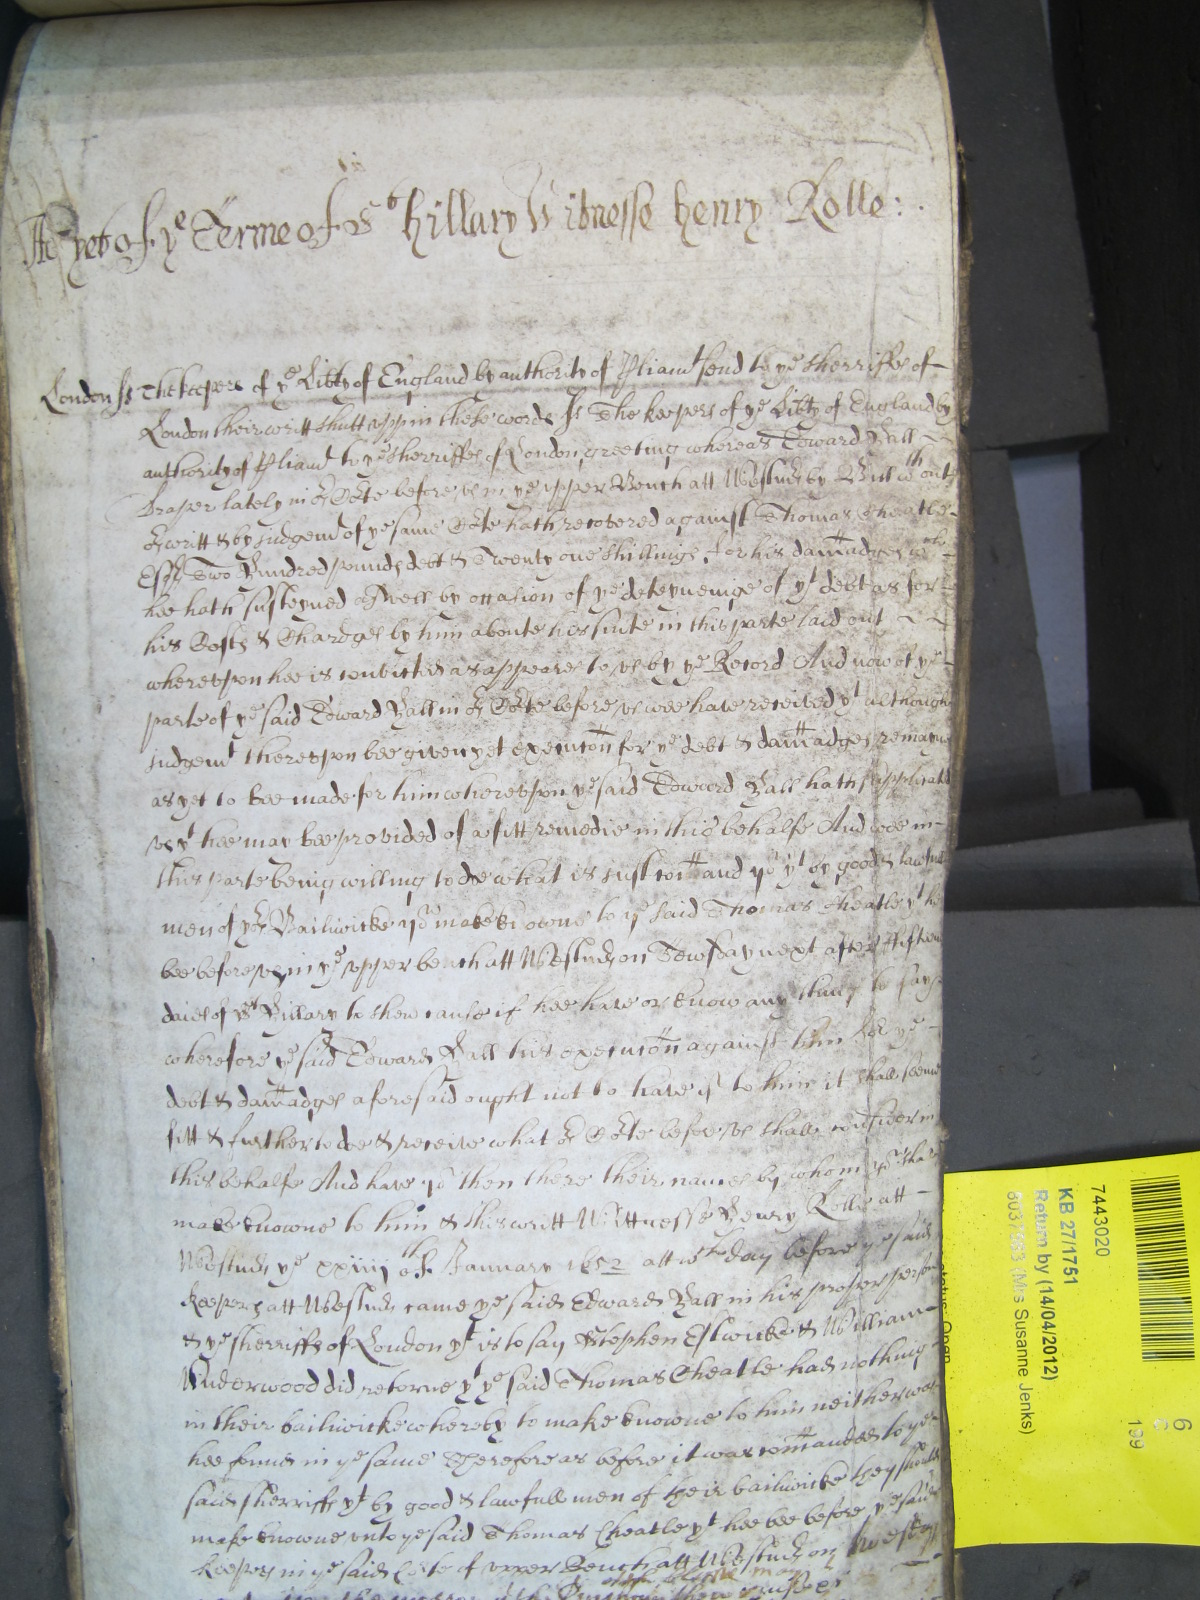 As yet of ye Terme of St Hillary Witnesse Henry Rolle:
London ss The keepers of ye Libty of England by authority of Pliamt send to ye sherriffes of
London their writt shutt upp in these words ss The keepers of ye Libty of England by
authority of Pliamt to ye sherriffes of London greeting whereas Edward Hall
draper lately in or Cote before us in ye upper Bench att Westmr by Bill wth out
or writt & by judgemt of ye same Cote hath recovered against Thomas Cheatle
Esqr Two Hundred pounds debt & Twenty one shillings for his damadges wch
hee hath susteyned aswell by occasion of ye deteyneinge of yt debt as for
his Costs & Chardges by him aboute his suite in this parte laid out
whereupon hee is convicted as appeares to us by ye Record And now of ye
parte of ye said Edward Hall in or Cote before us wee have received yt although
judgemt thereupon bee given yet execucon for ye debt & damadges remaynes
as yet to bee made for him whereupon ye said Edward Hall hath supplicated
us yt hee may bee provided of a fitt remedie in this behalfe And wee in
this parte being willing to doe what is just comand you yt by good & lawfull
men of yor Bailiwicke you make knowne to ye said Thomas Cheatle yt hee
bee before us in ye upper bench att Westmr on Tewsday next after fifteen
daies of St Hillary to shew cause if hee have or know any thing to say
wherefore ye said Edward Hall his execucon against him for ye
debt & damadges aforesaid ought not to have if to him it shall seeme
fitt & further to doe & receive what or Cote before us shall consider in
this behalfe And have you then there their names by whom you shall
make knowne to him & this writt Wittnesse Henry Rolle att
Westmr ye xxiiij th of January 1652 att wch day before ye said
keepers att Westmr came ye said Edward Hall in his proper person
& ye sherriffs of London yt is to say Stephen Estwicke & William
Underwood did retorne yt ye said Thomas Cheatle had nothing
in their bailiwicke whereby to make knowne to him neither was
hee found in ye same Therefore as before it was comanded to ye
said sherriffs yt by good & lawfull men of their bailiwicke they should
make knowne unto ye said Thomas Cheatle yt hee bee before ye said
keepers in ye said Cote of upper Bench att Westmr on
7443020
KB 27/1751
Return by (14/04/2012)
(Mrs Susanne Jenks)
6
199